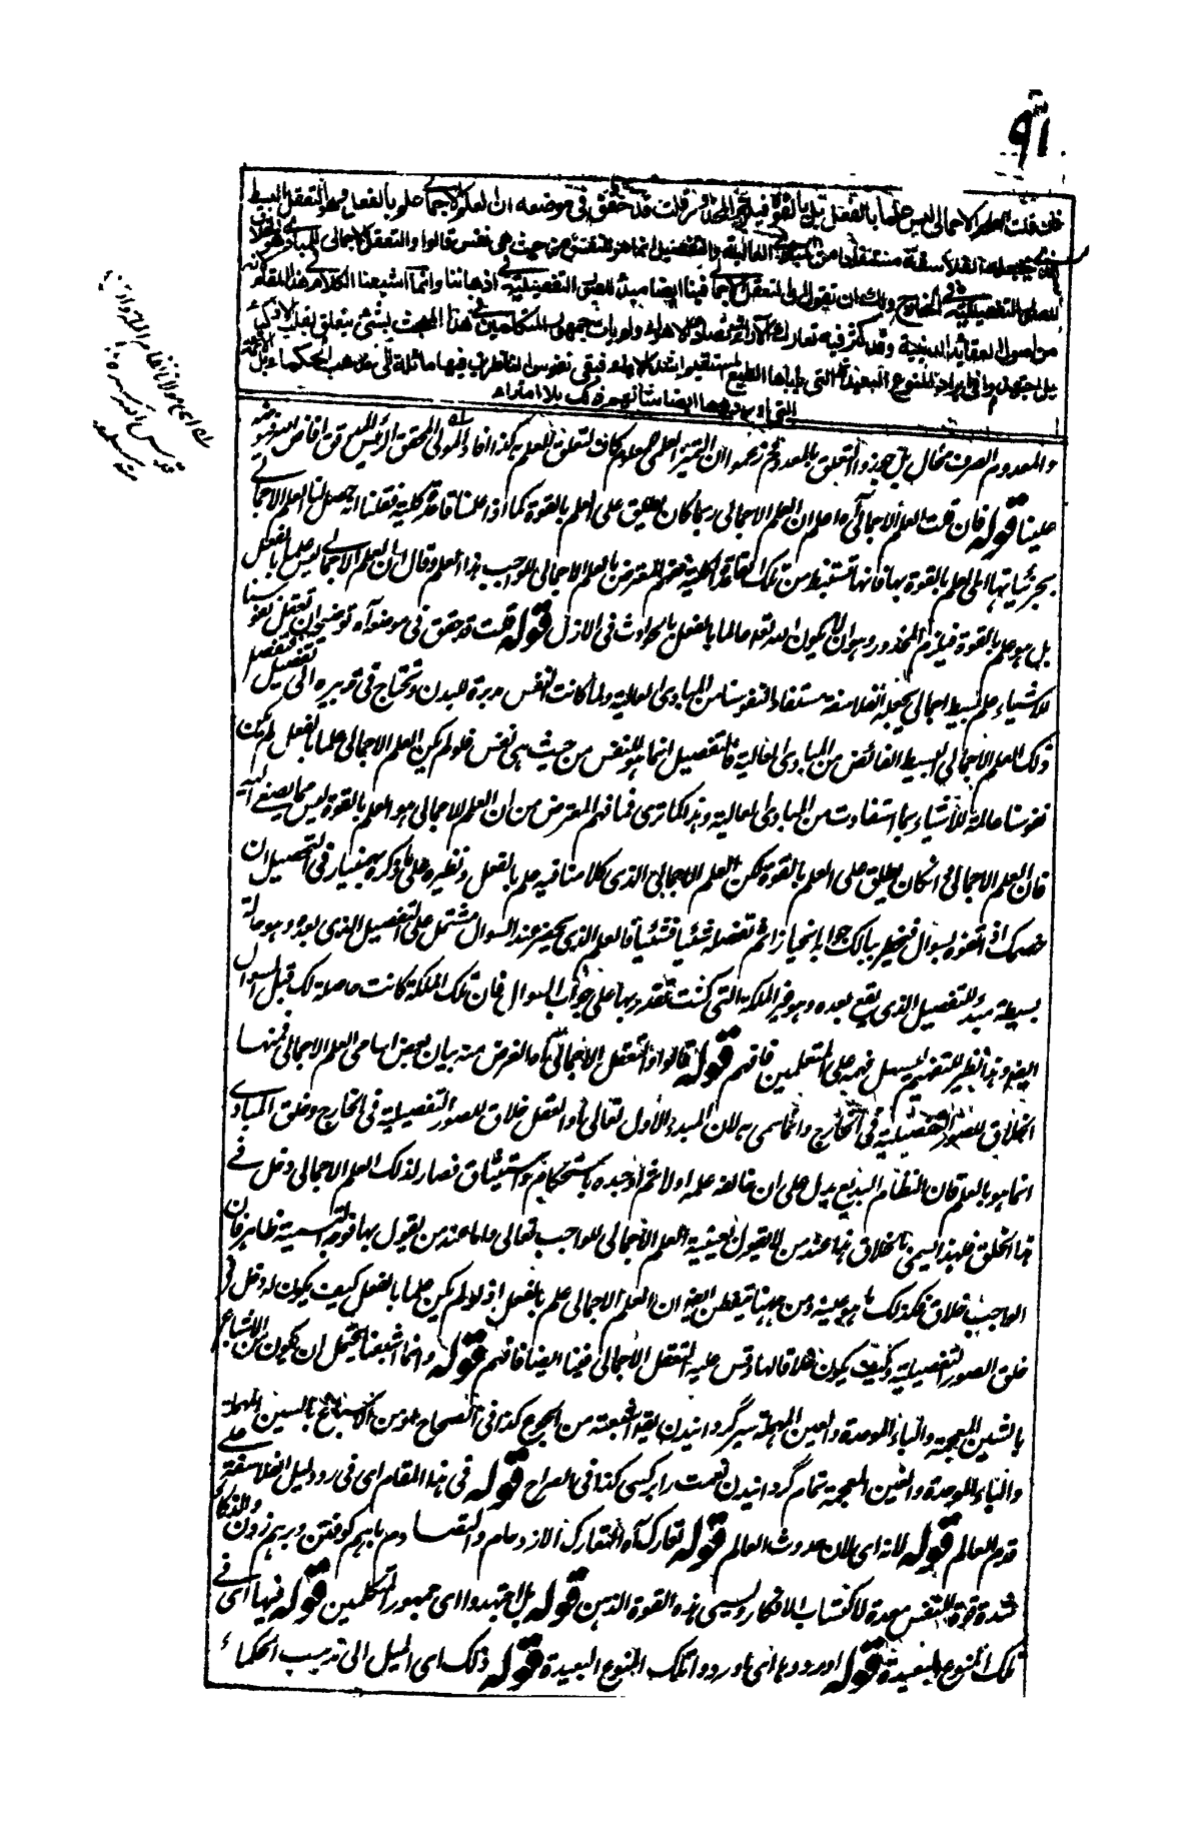 ٩١
فان قلت العلم الاجمالى ليس علما بالفعل بل بالقوة فيلزم المحذور قلت قد حقق فى موضعه ان العلم الاجمالى علم بالفعل وهو التعقل البسيط
الذى يجعله الفلاسفة مستفادا من المبادى العالية والتفصيل انما هو للنفس من حيث هى نفس قالوا والتعقل الاجمالى للمبادى هو الخلاق
للصور التفصيلية فى الخارج ولك ان تقول ان التعقل الاجمالى فينا ايضا مبدأ للصور التفصيلية فى اذهاننا وانما اشبعنا الكلام فى هذا المقام لانه
من اصول العقائد الدينية وقد كثر فيه تعارك الآراء وتصادم الاهواء ولم يأت جمهور المتكلمين فى هذا المبحث بشئ يتعلق بقلب الاذكياء
بل اجتهدوا فى ايراد المنوع البعيدة التى يأباها الطبع المستقيم فيبقى نفوس الناظرين فيها مائلة الى مذهب الحكماء بل الادلة
التى اوردوها ايضا شأنهم ذلك بلا امتراء
والمعدوم الصرف محال بل جوزوا التعلق بالمعدوم ثم زعموا ان التميز العلمى للمعلوم كاف لتعلق العلم به كذا افاد المولى المحقق
علينا قوله فان قلت العلم الاجمالى آه اعلم ان العلم الاجمالى ربما كان يطلق على العلم بالقوة كما اذا علمنا قاعدة كلية فقلنا انه حصل لنا العلم الاجمالى
بجزئياتها اى العلم بالقوة بها فانها تستنبط من تلك القاعدة الكلية فهم المعترض بالعلم الاجمالى للواجب هذا العلم وقال ان العلم الاجمالى ليس علما بالفعل
بل هو علم بالقوة فيلزم المحذور وهو ان لا يكون الله تعالى عالما بالفعل بالحوادث فى الازل قوله قلت قد حقق فى موضعه آه توضيحه ان تعقل نفوسنا
للاشياء علم بسيط اجمالى يجعله الفلاسفة مستفاد النفوسنا من المبادى العالية ولما كانت النفس مدبرة للبدن وتحتاج فى تدبيره الى تفصيل
ذلك العلم الاجمالى البسيط الفائض من المبادى العالية فالتفصيل انما هو للنفس من حيث هى نفس فلو لم يكن العلم الاجمالى علما بالفعل لم تكن
نفوسنا عالمة للاشياء بما استفادت من المبادى العالية وهذا كما ترى فما فهم المعترض من ان العلم الاجمالى هو العلم بالقوة ليس مما يصغى اليه
فان العلم الاجمالى وان كان يطلق على العلم بالقوة لكن العلم الاجمالى الذى كلامنا فيه علم بالفعل ونظيره على ما ذكره بهمنيار فى التحصيل ان
خصمك اذا تفوه بسؤال فيخطر ببالك جوابه ثم تفصله شيئا فشيئا فالعلم الذى يحضر عند السوال مشتمل على التفصيل الذى بعده وهو حالة
بسيطة مبدأ للتفصيل الذى يقع بعده وهو غير الملكة التى كنت تقدر بها على جواب السوال فان تلك الملكة كانت حاصلة لك قبل السوال
ايضا وهذا النظير للتفهيم ليسهل فهمه على المتعلمين فافهم قوله قالوا والتعقل الاجمالى آه الغرض منه بيان بعض اسامى العلم الاجمالى فمنها
الخلاق للصور التفصيلية فى الخارج وانما سمى به لان المبدء الاول تعالى او العقل خلاق للصور التفصيلية فى الخارج وخلق المبادى
انما هو بالعلم فان النظام البديع يدل على ان خالقه علمه اولا ثم اوجده باستحكام واستيثاق فصار لذلك العلم الاجمالى دخل فى
هذا الخلق فلهذا يسمى بالخلاق هذا عند من لا يقول بعينية العلم الاجمالى للواجب تعالى واما عند من يقول بها فوجه التسمية ظاهر فان
الواجب خلاق فكذلك ما هو عينه ومن ههنا تيقن ايضا ان العلم الاجمالى علم بالفعل اذ لو لم يكن علما بالفعل كيف يكون له دخل فى
خلق الصور التفصيلية وكيف يكون خلاقا لها وقس عليه التعقل الاجمالى فينا ايضا فافهم قوله وانما اشبعنا يحتمل ان يكون من الاشباع
بالشين المعجمة والباء الموحدة والعين المهملة سير گردانيدن يقال اشبعته من الجوع كذا فى الصحاح او من الاسباغ بالسين المهملة
والباء الموحدة والغين المعجمة تمام گردانيدن نعمت را بر كسى كذا فى الصراح قوله فى هذا المقام اى فى رد دليل الفلاسفة على
قدم العالم قوله لانه اى لان حدوث العالم قوله تعارك آه التعارك الازدحام والتصادم باهم كوفتن وبرهم زدن والذكاء
شدة قوة للنفس معدة لاكتساب الافكار ويسمى هذه القوة الذهن قوله بل اجتهدوا اى جمهور المتكلمين قوله فيها اى فى
تلك المنوع البعيدة قوله اوردوها اى ما وردوا تلك المنوع البعيدة قوله ذلك اى الميل الى مذهب الحكماء